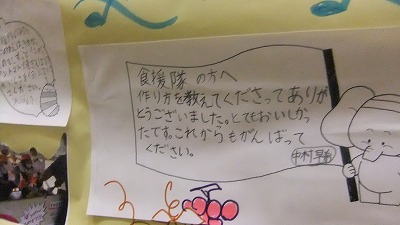 食援隊 の方へ
作り方を教えてくださってありが
とうございました。とてもおいしかっ
たです。これからもがんばって
ください。